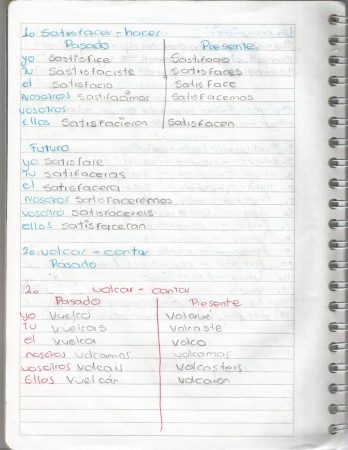 1. Satisfacer - hacer
Pasado Presente
yo Sastisfice Satisfago
Tu Sastisfaciste Satisfaces
el Satisfacio Satisface
Nosotros Sastifacimos Satisfacemos
vosotros
Ellos Satisfacieron Satisfacen
Futuro
yo Satisfare
Tu Satifaceras
el Satifacera
Nosotros Satisfaceremos
vosotro Satisfacereis
ellos Satisfaceran
2. volcar - contar
Pasado
2. volcar - contar
Pasado Presente
yo Vuelco Volqué
Tu Vuelcas Volcaste
el Vuelca Volco
nosotros Volcamos volcamos
vosotros Volcais Volcasteis
Ellos Vuelcan Volcaron